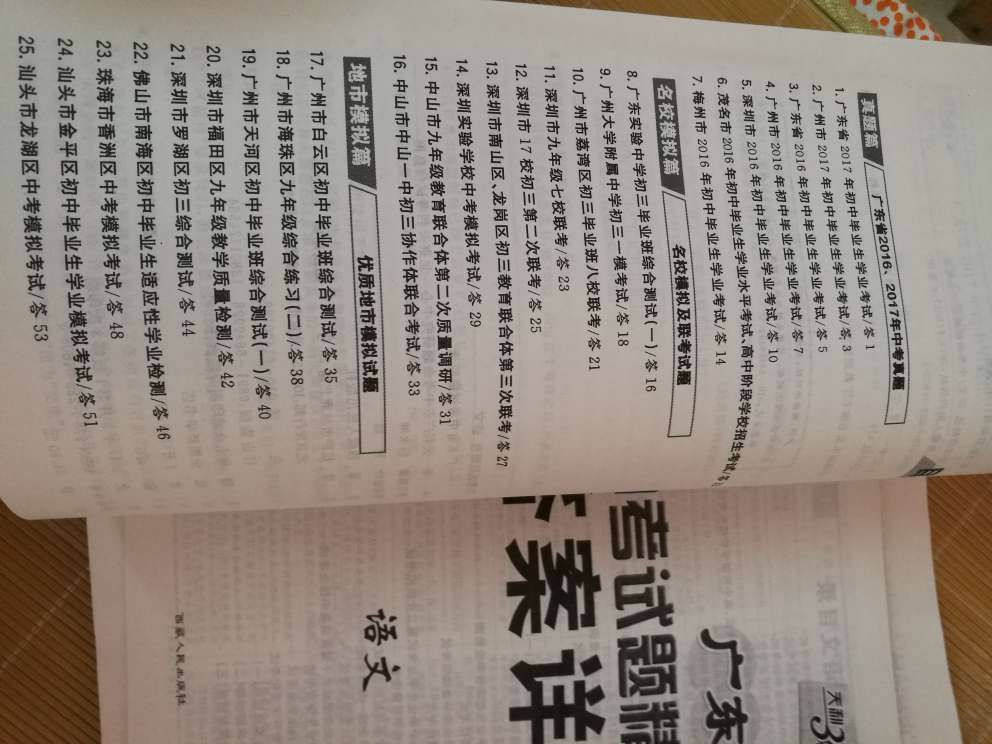 真题篇
广东省2016、2017年中考真题
1. 广东省 2017 年初中毕业生学业考试/答 1
2. 广州市 2017 年初中毕业生学业考试/答 3
3. 广东省 2016 年初中毕业生学业考试/答 5
4. 广州市 2016 年初中毕业生学业考试/答 7
5. 深圳市 2016 年初中毕业生学业水平考试、高中阶段学校招生考试/答 10
6. 茂名市 2016 年初中毕业生学业考试/答
7. 梅州市 2016 年初中毕业生学业考试/答 14
名校模拟篇
名校模拟及联考试题
8. 广东实验中学初三毕业班综合测试(一)/答 16
9. 广州大学附属中学初三一模考试/答 18
10. 广州市荔湾区初三毕业班八校联考/答 21
11. 深圳市九年级七校联考/答 23
12. 深圳市 17 校初三第二次联考/答 25
13. 深圳市南山区、龙岗区初三教育联合体第三次联考/答 27
14. 深圳实验学校中考模拟考试/答 29
15. 中山市九年级教育联合体第二次质量调研/答 31
16. 中山市中山一中初三协作体联合考试/答 33
地市模拟篇
优质地市模拟试题
17. 广州市白云区初中毕业班综合测试/答 35
18. 广州市海珠区九年级综合练习(二)/答 38
19. 广州市天河区初中毕业班综合测试(一)/答 40
20. 深圳市福田区九年级教学质量检测/答 42
21. 深圳市罗湖区初三综合测试/答 44
22. 佛山市南海区初中毕业生适应性学业检测/答 46
23. 珠海市香洲区中考模拟考试/答 48
24. 汕头市金平区初中毕业生学业模拟考试/答 51
25. 汕头市龙湖区中考模拟考试/答 53
天利3
广东
考试题精
案详
语文
西藏人民出版社